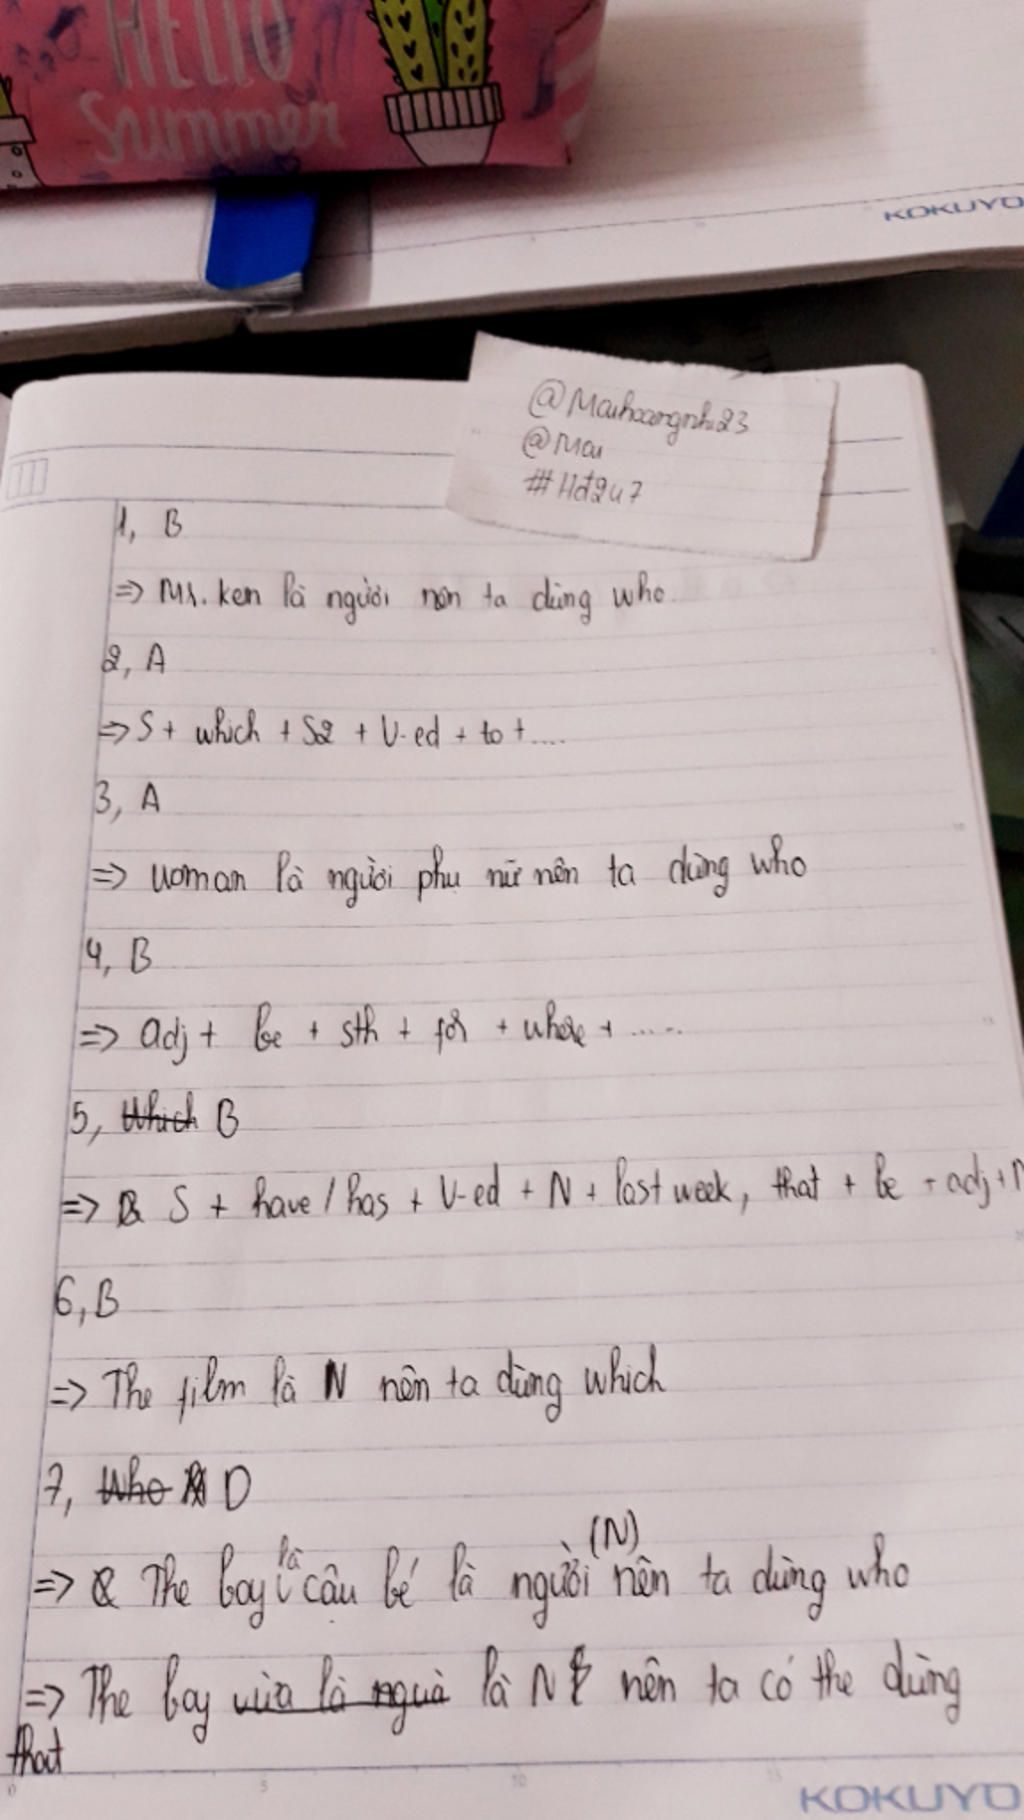 HELLO
Summer
KOKUYO
@Maihoangnhi23
@Mai
#Hđ247
1, B
=> Mr. ken là người nên ta dùng who
2, A
=> S + which + S2 + V-ed + to + ....
3, A
=> woman là người phụ nữ nên ta dùng who
4, B
=> adj + be + sth + for + whose + .....
5, Which B
=> S + have / has + V-ed + N + last week, that + be + adj + N
6, B
=> The film là N nên ta dùng which
7, Who D
=> The boy là cậu bé là người (N) nên ta dùng who
=> The boy vừa là người là N nên ta có the dùng
that
0 5 10 15
KOKUYO